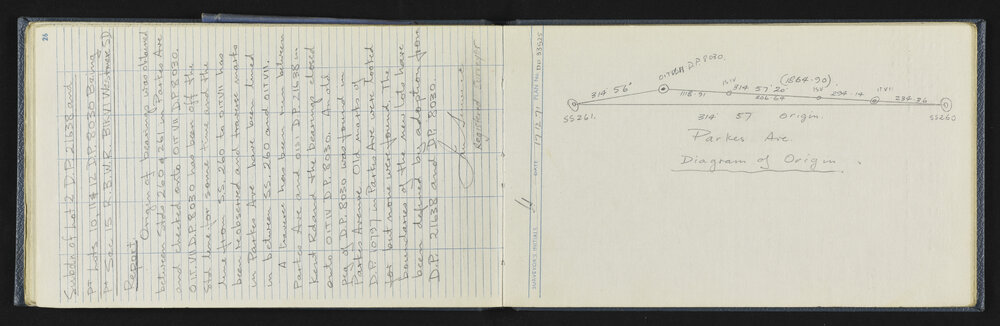 26
Subdn of Lot 2 D.P. 21638 and
pt Lots 10, 11 & 12 D.P. 8030 Being
pt Sec 15 R.B.W.R. BK VII Westmore SD
Report
Origin of bearings was obtained
between Stds 260 & 261 in Parkes Ave
and checked onto O.IT.VII D.P. 8030.
O.IT.VII D.P. 8030 has been off the
Std line for some time and the
line from SS. 260 to O.IT.VII has
been reobserved and traverse marks
in Parkes Ave have been lined
in between SS. 260 and O.IT.VII.
A traverse has been run between
Parkes Ave and O.IS D.P. 21638 in
Kent Rd and the bearings closed
onto O.IT.IV D.P. 8030. An old
peg of D.P. 8030 was found in
Parkes Avenue. Old marks of
D.P. 10197 in Parkes Ave were looked
for but none were found. The
boundaries of the new lots have
been defined by adoption from
D.P. 21638 and D.P. 8030.
Registered Surveyor
SURVEYOR'S INITIALS
DATE 17.12.71 PLAN No. DO 33525
O.IT.VIII D.P. 8030.
314 56'
1118.91
IS IV
314 57' 20"
206.64
(1864.90)
IS V
294.14
IT.VII
234.26
SS 261.
314 57 Origin.
SS 260
Parkes Ave.
Diagram of Origin.